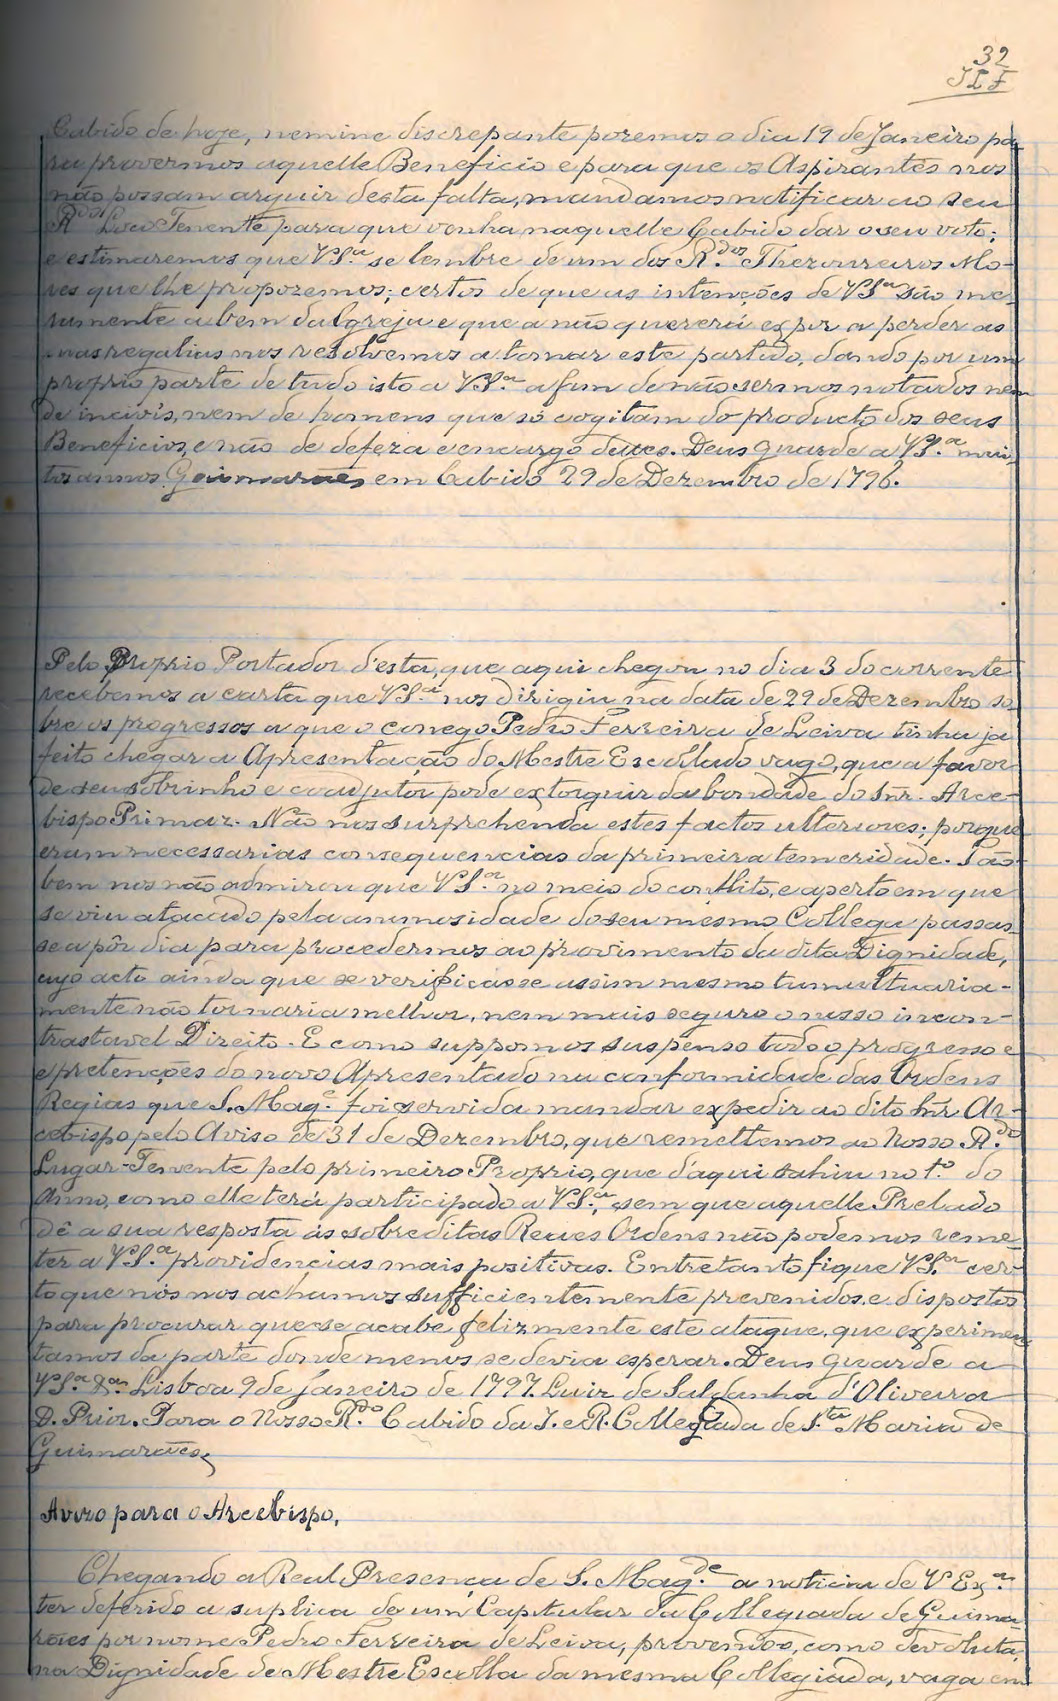 32
Cabido de hoje, nemine discrepante poremos o dia 19 de Janeiro pa-
ra provermos aquelle Beneficio e para que os Aspirantes nos
não possam arguir desta falta, mandamos notificar ao seu
R.dos Loco Tenente para que venha naquelle Cabido dar o seu voto;
e estimaremos que VS.a se lembre de um dos R.dos Thezoureiros Mo-
res que lhe propozemos; certos de que as intenções de VS.a são me-
ramente a bem da Igreja e que a não quererá expor a perder as
suas regalias nos resolvemos a tomar este partido, dando por um
proprio parte de tudo isto a V.S.a afim de não sermos notados nem
de incivis, nem de homens que só cogitam do producto dos seus
Beneficios, e não de defeza e encargo delles. Deus Guarde a VS.a mui-
tos annos. Guimarães em Cabido 29 de Dezembro de 1796.
Pelo Proprio Portador d'esta, que aqui chegou no dia 3 do corrente
recebemos a carta que VS.a nos dirigiu na data de 29 de Dezembro so-
bre os progressos a que o conego Pedro Ferreira de Leiva tinha ja
feito chegar a Apresentação do Mestre Escollado vago, que a favor
de seu sobrinho e coadjutor pode extorquir da bondade do Snr. Arce-
bispo Primaz. Não nos surprehenda estes factos ulteriores; porque
eram necessarias consequencias da primeira temeridade. Tão
bem nos não admirou que VS.a no meio do conflito, e aperto em que
se viu atacado pela animosidade do seu mesmo Collega passas-
se a pôr dia para procedermos ao provimento da dita Dignidade,
cujo acto ainda que se verificasse assim mesmo tumultuaria-
mente não tornaria melhor, nem mais seguro o nosso incon-
trastavel Direito. E como suppomos suspenso todo o progresso e
e pretenções do novo Apresentado na conformidade das Ordens
Regias que S. Mag.e foi servida mandar expedir ao dito Snr Ar-
cebispo pelo Aviso de 31 de Dezembro, que remettemos ao Nosso R.do
Lugar-Tenente pelo primeiro Proprio, que d'aqui sahiu no 1.o do
Anno, como elle terá participado a VS.a, sem que aquelle Prelado
dê a sua resposta ás sobreditas Reaes Ordens não podemos reme-
ter a VS.a providencias mais positivas. Entretanto fique VS.a cer-
to que nós nos achamos sufficientemente prevenidos e dispostos
para procurar que se acabe felizmente este ataque, que experimen-
tamos da parte donde menos se devia esperar. Deus Guarde a
VS.a Lisboa 9 de Janeiro de 1797. Luiz de Saldanha d'Oliveira
D. Prior. Para o Nosso R.do Cabido da I. e R. Collegiada de S.ta Maria de
Guimarães.
Aviso para o Arcebispo,
Chegando a Real Presença de S. Mag.de a noticia de V Ex.a
ter deferido a suplica de um Capitular da Collegiada de Guima-
rães por nome Pedro Ferreira de Leiva, provendo-o, como devoluta,
na Dignidade de Mestre Escolla da mesma Collegiada, vaga em